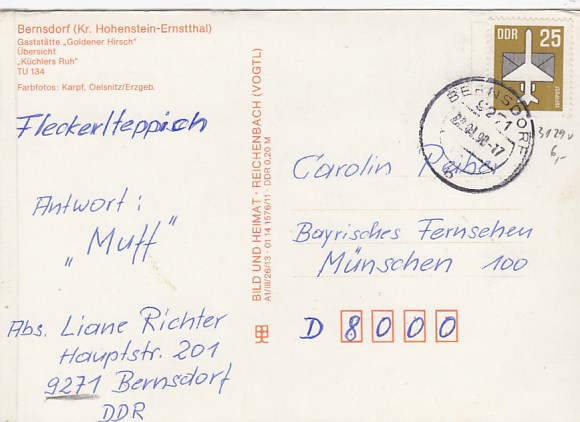 Bernsdorf (Kr. Hohenstein-Ernstthal)
Gaststätte „Goldener Hirsch"
Übersicht
„Küchlers Ruh"
TU 134
Farbfotos: Karpf, Oelsnitz/Erzgeb.
Fleckerlteppich
Antwort:
„Muff"
Abs. Liane Richter
Hauptstr. 201
9271 Bernsdorf
DDR
BILD UND HEIMAT · REICHENBACH (VOGTL)
A1/III/26/13 · 01 14 1576/11 · DDR 0,20 M
DDR 25
LUFTPOST
BERNSDORF
9271
-17
3129v
6,-
Carolin
Bayrisches Fernsehen
Münschen 100
D 8000